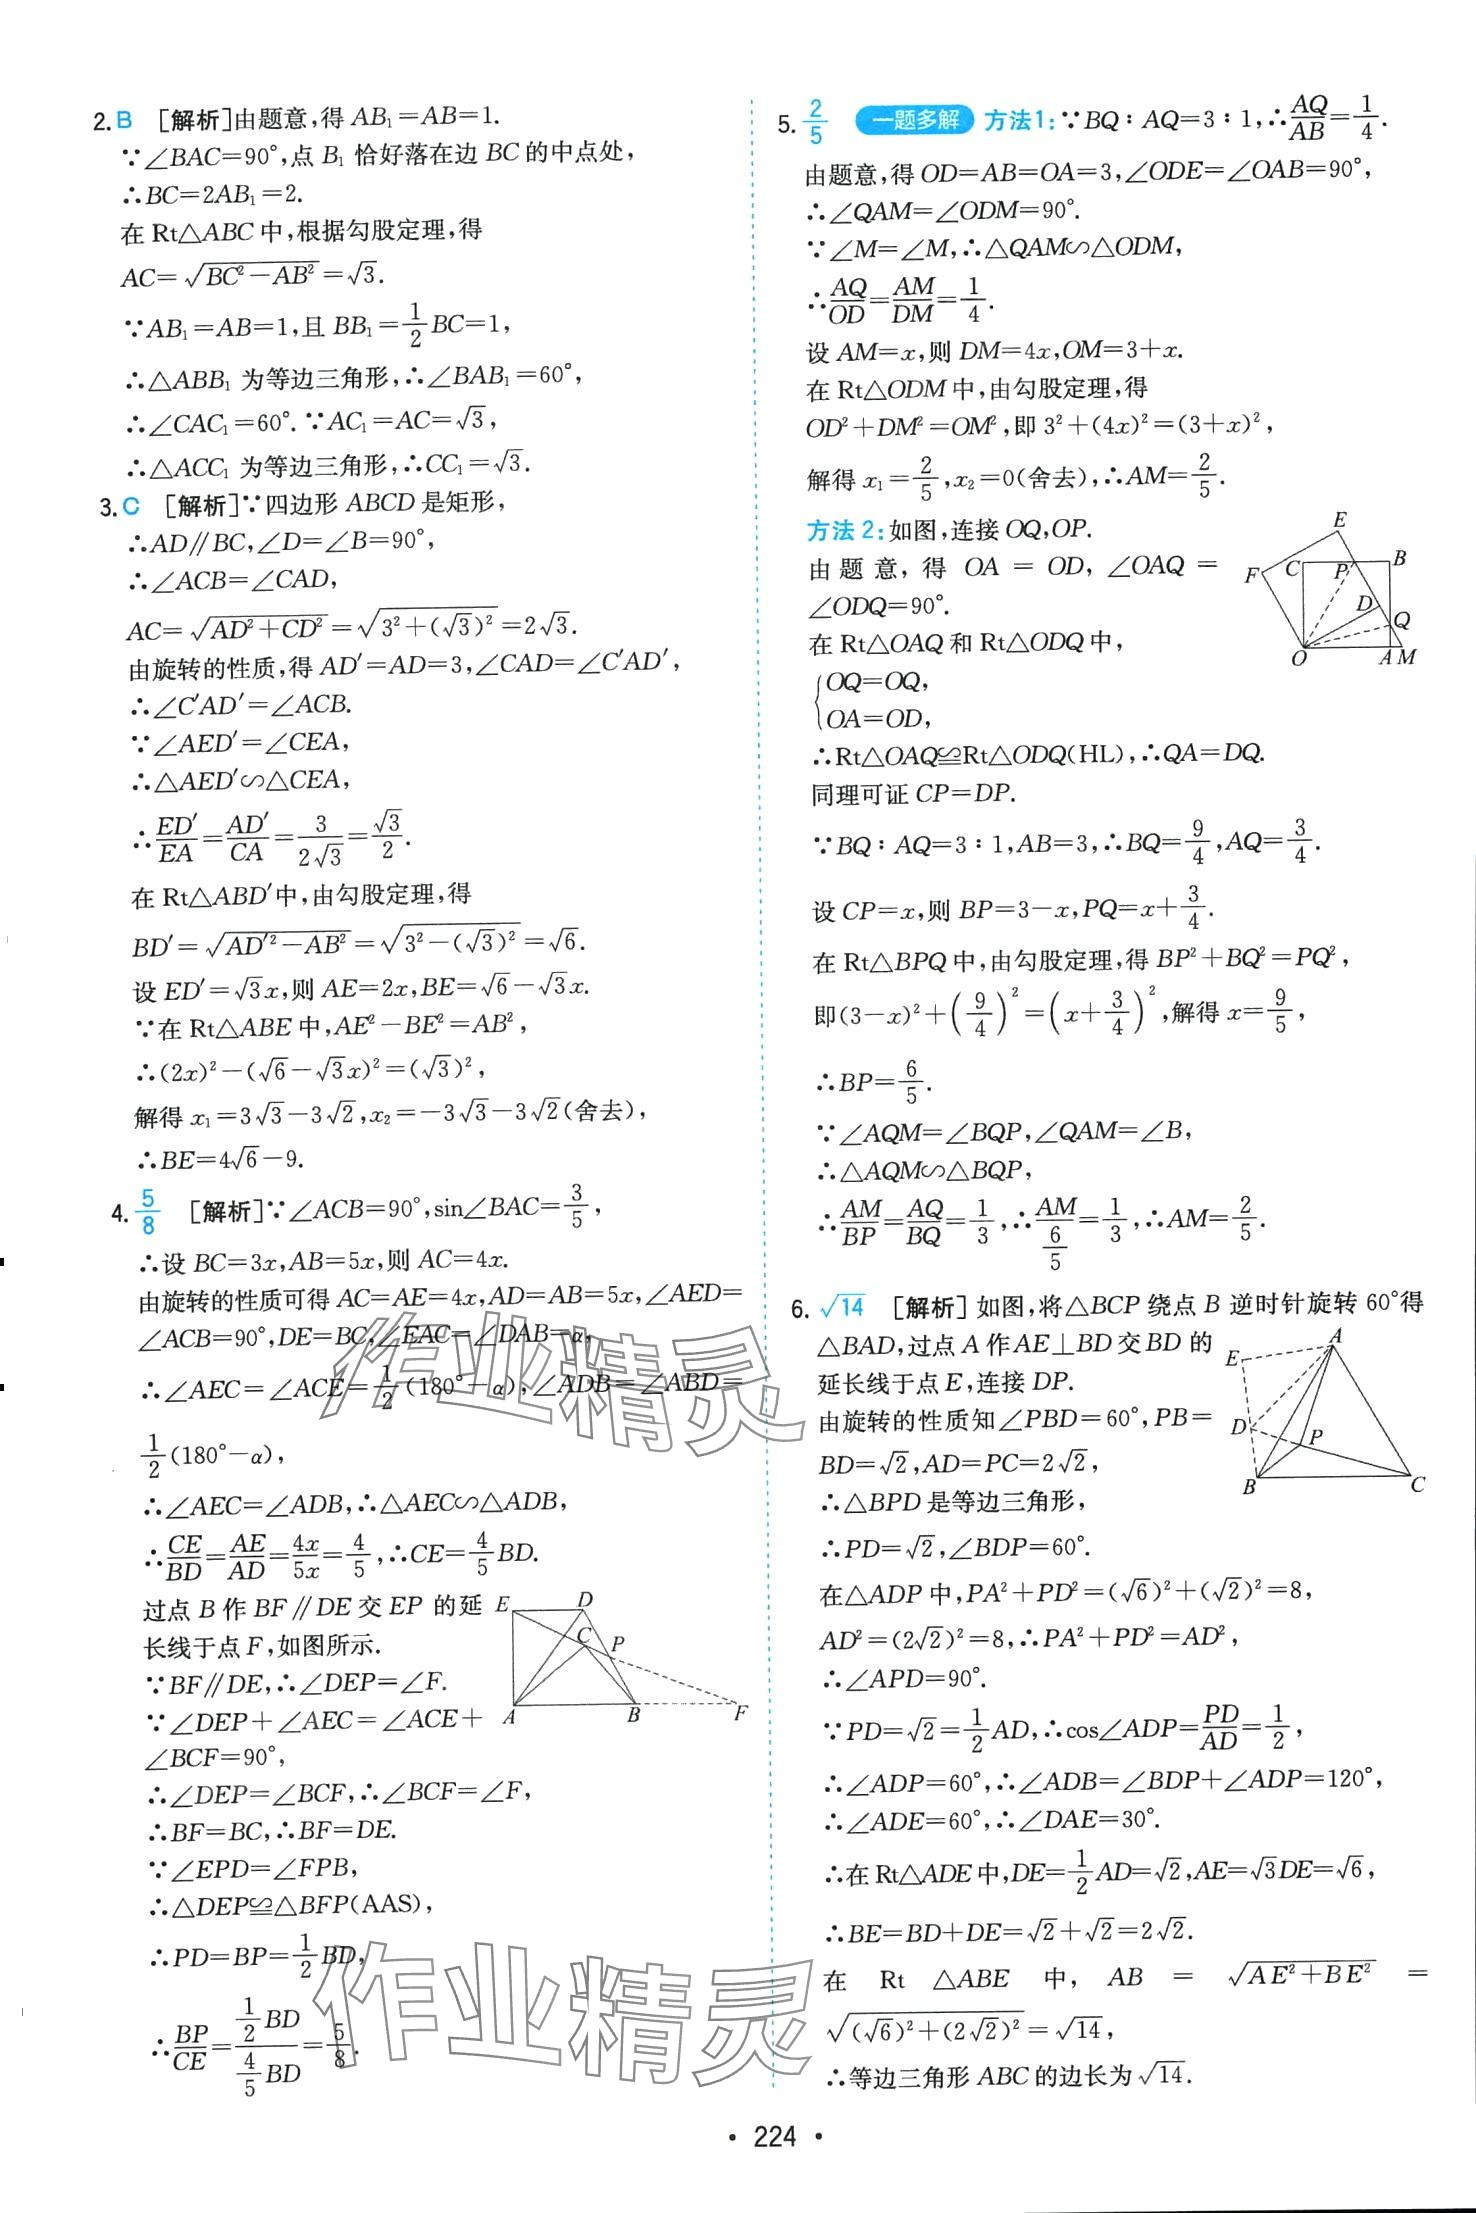 2. B [解析]由题意,得 AB₁=AB=1.
∵∠BAC=90°,点 B₁ 恰好落在边 BC 的中点处,
∴BC=2AB₁=2.
在 Rt△ABC 中,根据勾股定理,得
AC=√(BC²-AB²)=√3.
∵AB₁=AB=1,且 BB₁=1/2 BC=1,
∴△ABB₁ 为等边三角形,∴∠BAB₁=60°,
∴∠CAC₁=60°.∵AC₁=AC=√3,
∴△ACC₁ 为等边三角形,∴CC₁=√3.
3. C [解析]∵四边形 ABCD 是矩形,
∴AD∥BC,∠D=∠B=90°,
∴∠ACB=∠CAD,
AC=√(AD²+CD²)=√(3²+(√3)²)=2√3.
由旋转的性质,得 AD′=AD=3,∠CAD=∠C′AD′,
∴∠C′AD′=∠ACB.
∵∠AED′=∠CEA,
∴△AED′∽△CEA,
∴ED′/EA=AD′/CA=3/(2√3)=√3/2.
在 Rt△ABD′中,由勾股定理,得
BD′=√(AD′²-AB²)=√(3²-(√3)²)=√6.
设 ED′=√3x,则 AE=2x,BE=√6-√3x.
∵在 Rt△ABE 中,AE²-BE²=AB²,
∴(2x)²-(√6-√3x)²=(√3)²,
解得 x₁=3√3-3√2,x₂=-3√3-3√2(舍去),
∴BE=4√6-9.
4. 5/8 [解析]∵∠ACB=90°,sin∠BAC=3/5,
∴设 BC=3x,AB=5x,则 AC=4x.
由旋转的性质可得 AC=AE=4x,AD=AB=5x,∠AED=
∠ACB=90°,DE=BC,∠EAC=∠DAB=α,
∴∠AEC=∠ACE=1/2(180°-α),∠ADB=∠ABD=
1/2(180°-α),
∴∠AEC=∠ADB,∴△AEC∽△ADB,
∴CE/BD=AE/AD=4x/5x=4/5,∴CE=4/5 BD.
过点 B 作 BF∥DE 交 EP 的延
长线于点 F,如图所示.
∵BF∥DE,∴∠DEP=∠F.
∵∠DEP+∠AEC=∠ACE+
∠BCF=90°,
∴∠DEP=∠BCF,∴∠BCF=∠F,
∴BF=BC,∴BF=DE.
∵∠EPD=∠FPB,
∴△DEP≌△BFP(AAS),
∴PD=BP=1/2 BD,
∴BP/CE=(1/2 BD)/(4/5 BD)=5/8.
E D C P A B F
5. 2/5 一题多解 方法1:∵BQ:AQ=3:1,∴AQ/AB=1/4.
由题意,得 OD=AB=OA=3,∠ODE=∠OAB=90°,
∴∠QAM=∠ODM=90°.
∵∠M=∠M,∴△QAM∽△ODM,
∴AQ/OD=AM/DM=1/4.
设 AM=x,则 DM=4x,OM=3+x.
在 Rt△ODM 中,由勾股定理,得
OD²+DM²=OM²,即 3²+(4x)²=(3+x)²,
解得 x₁=2/5,x₂=0(舍去),∴AM=2/5.
方法 2:如图,连接 OQ,OP.
由题意,得 OA=OD,∠OAQ=
∠ODQ=90°.
在 Rt△OAQ 和 Rt△ODQ 中,
{OQ=OQ,
OA=OD,
∴Rt△OAQ≌Rt△ODQ(HL),∴QA=DQ.
同理可证 CP=DP.
E F C P B D Q O A M
∵BQ:AQ=3:1,AB=3,∴BQ=9/4,AQ=3/4.
设 CP=x,则 BP=3-x,PQ=x+3/4.
在 Rt△BPQ 中,由勾股定理,得 BP²+BQ²=PQ²,
即(3-x)²+(9/4)²=(x+3/4)²,解得 x=9/5,
∴BP=6/5.
∵∠AQM=∠BQP,∠QAM=∠B,
∴△AQM∽△BQP,
∴AM/BP=AQ/BQ=1/3,∴AM/(6/5)=1/3,∴AM=2/5.
6. √14 [解析]如图,将△BCP 绕点 B 逆时针旋转 60°得
△BAD,过点 A 作 AE⊥BD 交 BD 的
延长线于点 E,连接 DP.
由旋转的性质知∠PBD=60°,PB=
BD=√2,AD=PC=2√2,
∴△BPD 是等边三角形,
A E D P B C
∴PD=√2,∠BDP=60°.
在△ADP 中,PA²+PD²=(√6)²+(√2)²=8,
AD²=(2√2)²=8,∴PA²+PD²=AD²,
∴∠APD=90°.
∵PD=√2=1/2 AD,∴cos∠ADP=PD/AD=1/2,
∴∠ADP=60°,∴∠ADB=∠BDP+∠ADP=120°,
∴∠ADE=60°,∴∠DAE=30°.
∴在 Rt△ADE 中,DE=1/2 AD=√2,AE=√3DE=√6,
∴BE=BD+DE=√2+√2=2√2.
在 Rt △ABE 中, AB = √(AE²+BE²) =
√((√6)²+(2√2)²)=√14,
∴等边三角形 ABC 的边长为√14.
作业精灵
作业精灵
• 224 •